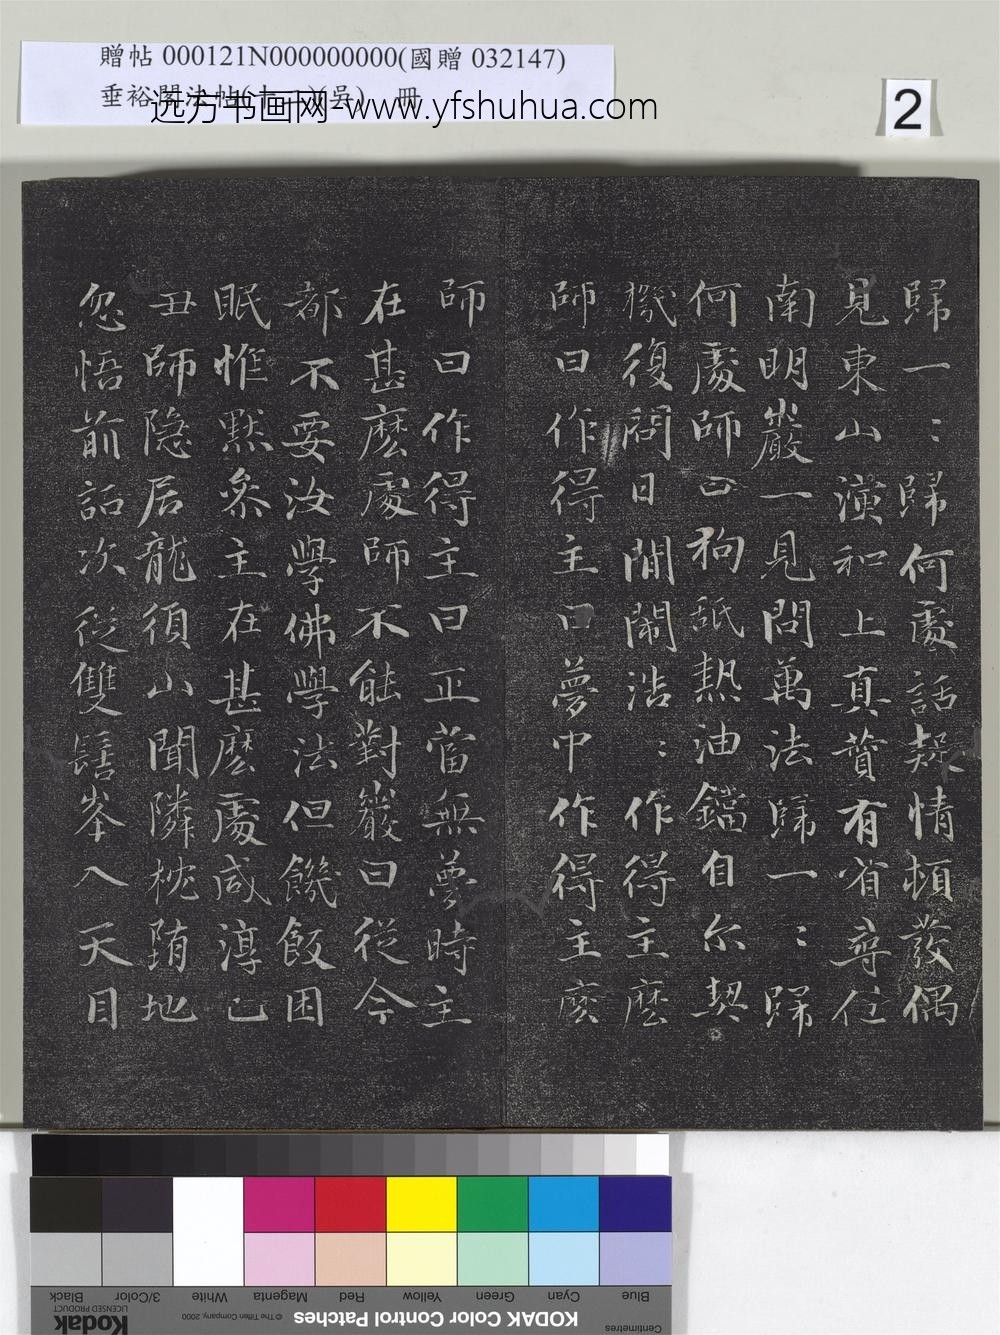 贈帖 000121N000000000(國贈 032147)
垂裕閣法帖(十一)(吳) 冊
远方书画网-www.yfshuhua.com
2
歸一：歸何處話疑情頓發偶
見東山演和上真贊有省尋住
南明巖一見問萬法歸一：歸
何處師曰狗舐熱油鐺自尒契
機復問日間鬧浩：作得主麼
師曰作得主曰夢中作得主麼
師曰作得主曰正當無夢時主
在甚麼處師不能對巖曰從今
都不要汝學佛學法但饑飯困
眠惟默參主在甚麼處咸淳己
丑師隐居龍須山聞隣枕堕地
忽悟前話次從雙髻峯入天目
Blue
Cyan
Green
Yellow
Red
Magenta
White
3/Color
Black
Centimetres
KODAK Color Control Patches
© The Tiffen Company, 2000
Kodak
LICENSED PRODUCT